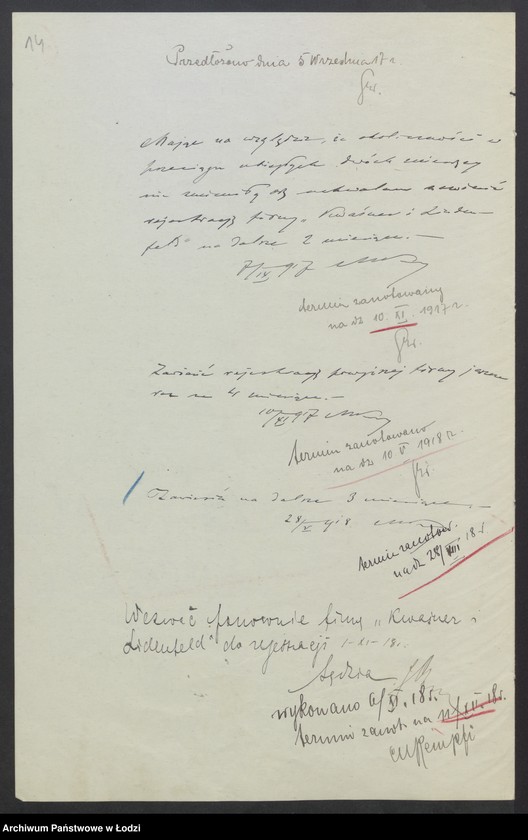 14
Przedłożono dnia 5 Września 17 r.
Mając na względzie, że okoliczności w
przeciągu ubiegłych dwóch miesięcy
nie zmieniły się uchwalam zawiesić
rejestrację firmy „Kwaśner i Liden-
feld" na dalsze 2 miesiące. —
7/IX 917
termin zanotowany
na dz 10. XI. 1917 r.
Zawiesić rejestrację powyższej firmy jeszcze
raz na 4 miesiące. —
10/XI 917
termin zanotowano
na dz 10 V 1918 r.
Zawiesić na dalsze 3 miesiące. —
28/V 918
termin zanotow.
na dz 28/VIII 18 r.
Wezwać ponownie firmę „Kwaśner i
Lidenfeld" do rejestracji 1-XI-18r.
Sędzia
wykonano 6/XI. 18 r.
termin zanot. na 11/XII. 18r.
Archiwum Państwowe w Łodzi